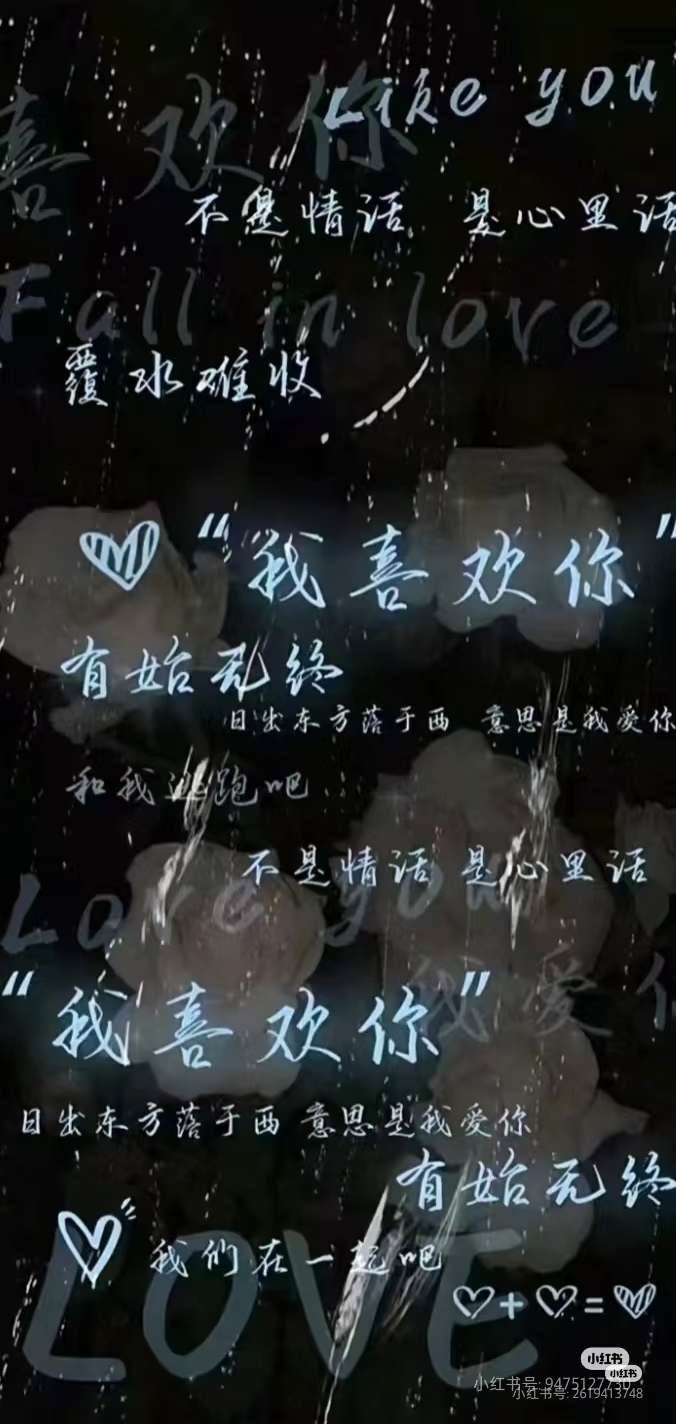 Like you
喜欢你
不是情话 是心里话
Fall in love
覆水难收
“我喜欢你”
有始无终
日出东方落于西 意思是我爱你
和我逃跑吧
不是情话 是心里话
Love you
我爱你
“我喜欢你”
日出东方落于西 意思是我爱你
有始无终
我们在一起吧
LOVE
+ =
小红书
小红书
小红书号: 9475127730
小红书号: 2619413748